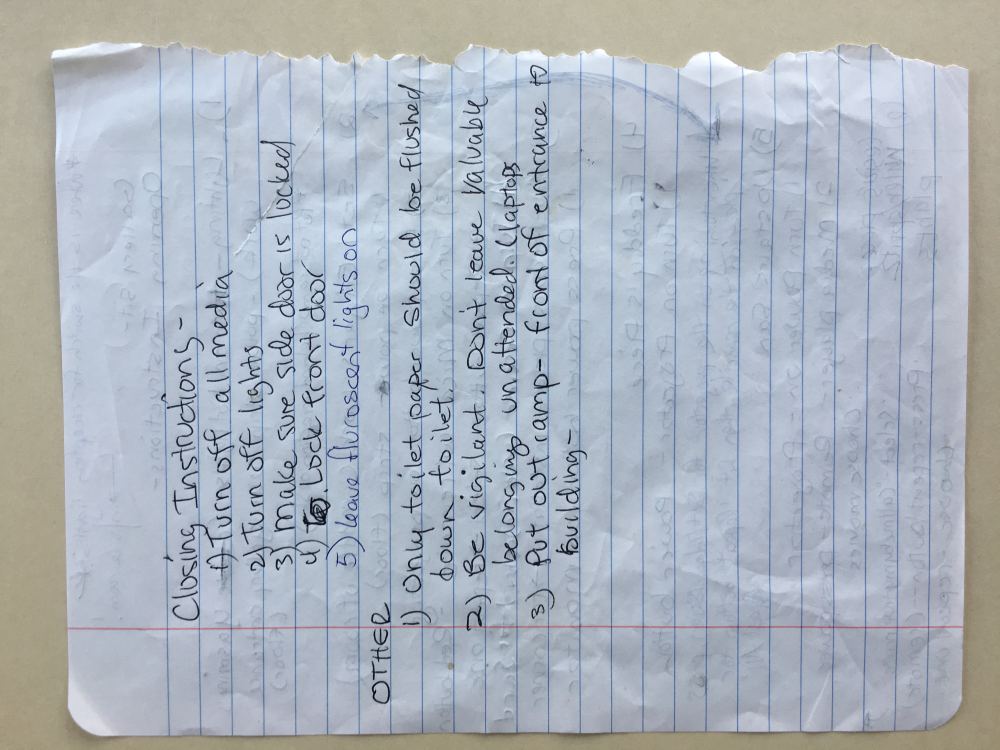 Closing Instructions -
1) Turn off all media
2) Turn off lights
3) Make sure side door is locked
4) Lock front door
5) leave fluroscent lights on
OTHER
1) Only toilet paper should be flushed
down toilet.
2) Be vigilant. Don't leave valuable
belongings unattended. (laptops
3) Put out ramp - front of entrance to
building -